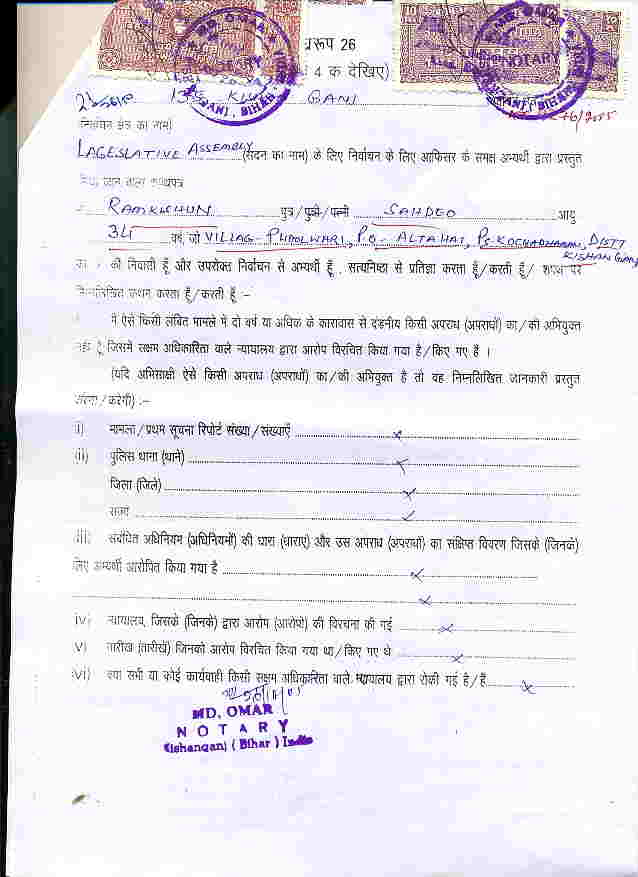 MD. OMAR
NOTARY
BIHAR
MD. OMAR
NOTARY
BIHAR
रूप 26
4 क देखिए)
GANJ
निर्वाचन क्षेत्र का नाम)
LAGESLATIVE ASSEMBLY (सदन का नाम) के लिए निर्वाचन के लिए आफिसर के समक्ष अभ्यर्थी द्वारा प्रस्तुत
किया जाने वाला शपथपत्र
RAMKISHUN पुत्र/पुत्री/पत्नी SAHDEO आयु
34 वर्ष, जो VILLAG- PHOOLWARI, PO- ALTAHAT, PS. KOCHADHAMAN, DISTT
KISHANGANJ
का की निवासी हूँ और उपरोक्त निर्वाचन से अभ्यर्थी हूँ, सत्यनिष्ठा से प्रतिज्ञा करता हूँ/करती हूँ/ शपथ पर
निम्नलिखित कथन करता हूँ/करती हूँ :-
मैं ऐसे किसी लंबित मामले में दो वर्ष या अधिक के कारावास से दंडनीय किसी अपराध (अपराधों) का/की अभियुक्त
नहीं हूँ जिसमें सक्षम अधिकारिता वाले न्यायालय द्वारा आरोप विरचित किया गया है/किए गए हैं ।
(यदि अभिसाक्षी ऐसे किसी अपराध (अपराधों) का/की अभियुक्त है तो वह निम्नलिखित जानकारी प्रस्तुत
करेगा/करेगी) :-
i) मामला/प्रथम सूचना रिपोर्ट संख्या/संख्याएँ x
(ii) पुलिस थाना (थाने) x
जिला (जिले) x
राज्य x
iii) संबंधित अधिनियम (अधिनियमों) की धारा (धाराएं) और उस अपराध (अपराधों) का संक्षिप्त विवरण जिसके (जिनके)
लिए अभ्यर्थी आरोपित किया गया है x
x
iv) न्यायालय, जिसके (जिनके) द्वारा आरोप (आरोपों) की विरचना की गई x
v) तारीख (तारीखें) जिनको आरोप विरचित किया गया था/किए गए थे x
vi) क्या सभी या कोई कार्यवाही किसी सक्षम अधिकारिता वाले न्यायालय द्वारा रोकी गई है/हैं x
MD. OMAR
NOTARY
Kishanganj (Bihar) India